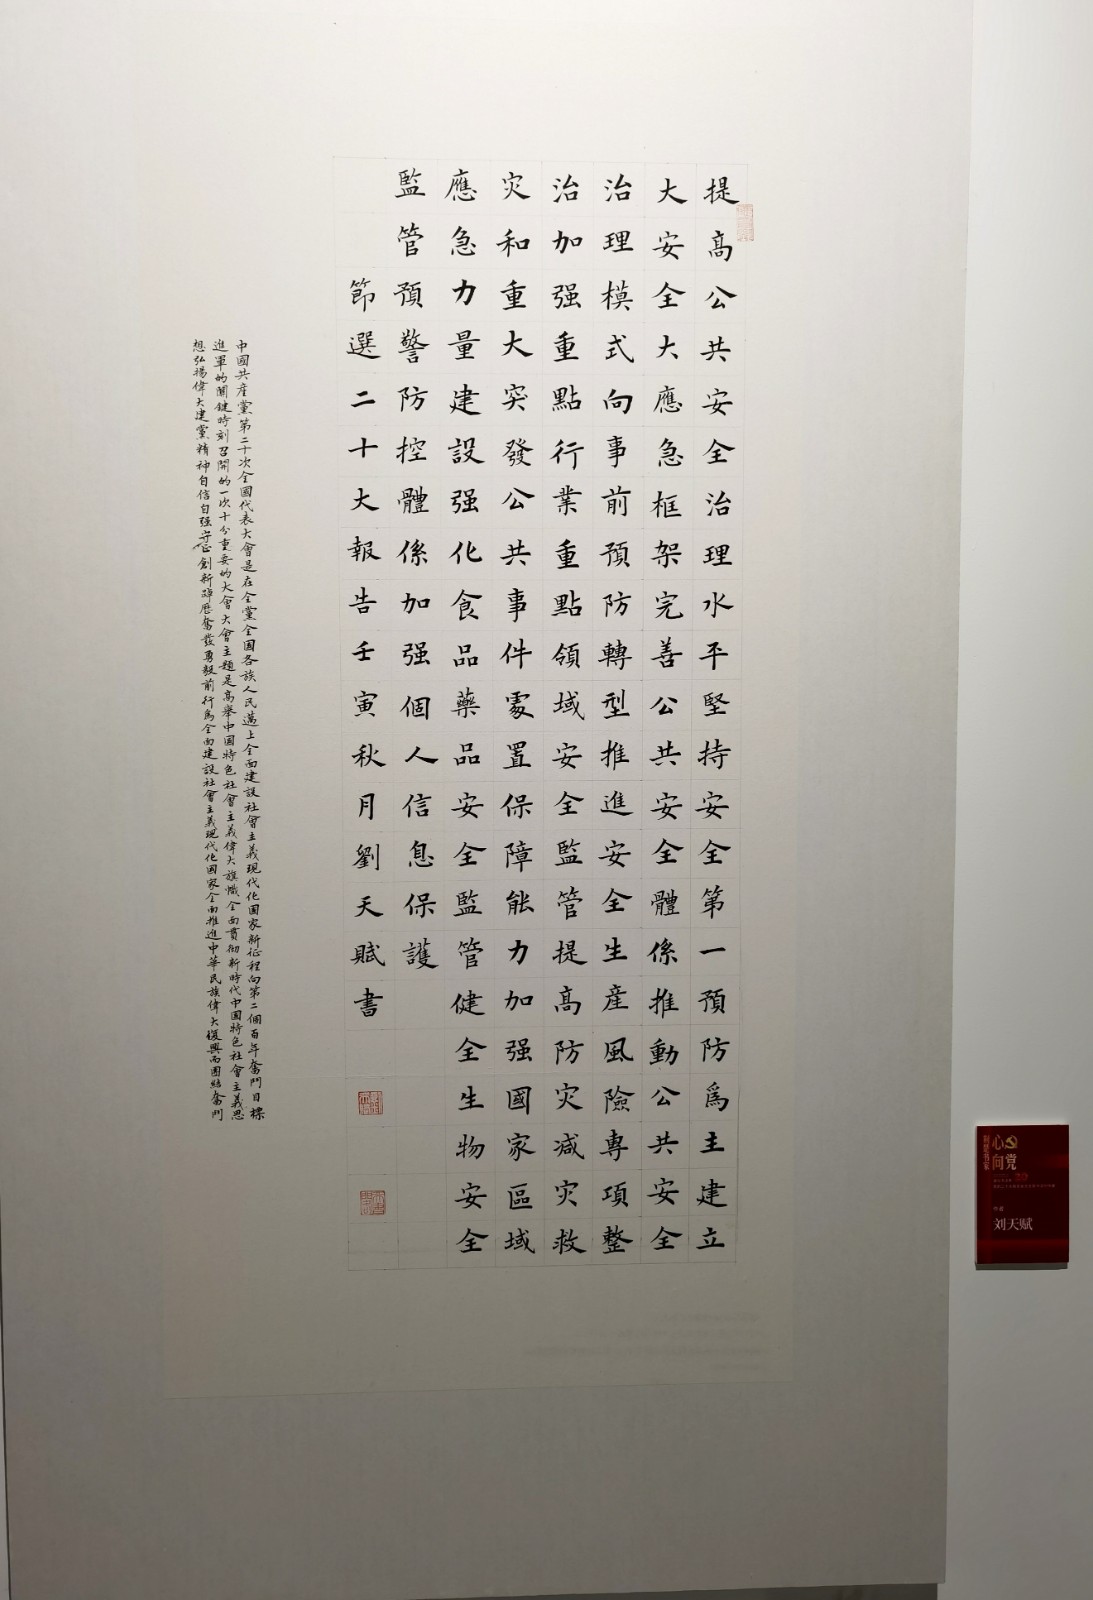 提高公共安全治理水平堅持安全第一預防爲主建立
大安全大應急框架完善公共安全體係推動公共安全
治理模式向事前預防轉型推進安全生産風險專項整
治加强重點行業重點領域安全監管提高防灾减灾救
灾和重大突發公共事件處置保障能力加强國家區域
應急力量建設强化食品藥品安全監管健全生物安全
監管預警防控體係加强個人信息保護
節選二十大報告壬寅秋月劉天賦書
中國共産黨第二十次全國代表大會是在全黨全國各族人民邁上全面建設社會主義現代化國家新征程向第二個百年奮鬥目標
進軍的關鍵時刻召開的一次十分重要的大會大會主題是高舉中国特色社會主義偉大旗幟全面貫彻新時代中國特色社會主義思
想弘揚偉大建黨精神自信自强守正創新踔厲奮發勇毅前行爲全面建設社會主義現代化國家全面推進中華民族偉大復興而團結奮鬥
心
向党
作者
刘天赋